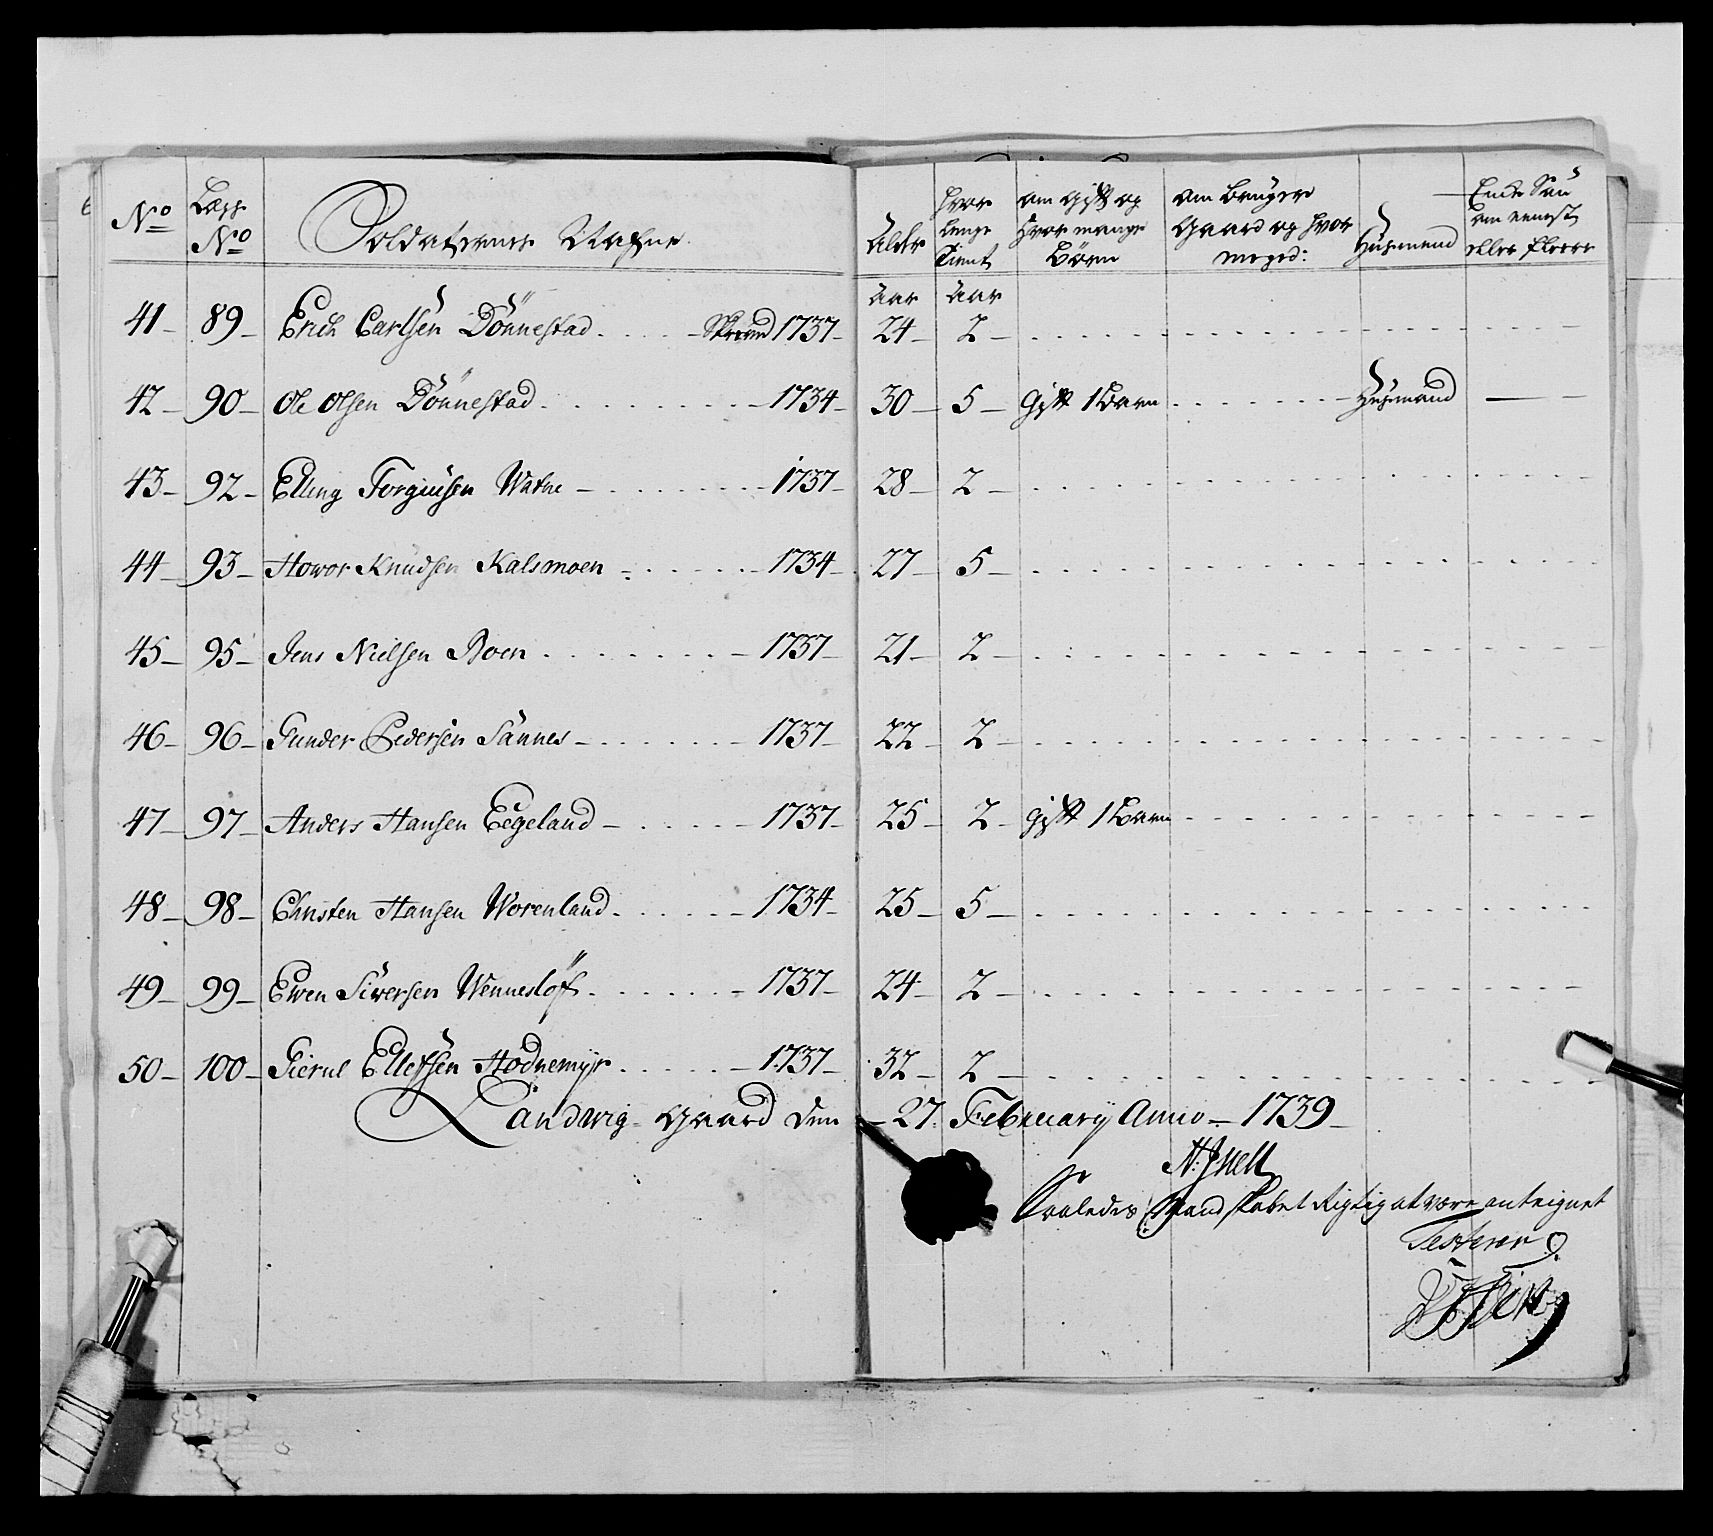 No Lægs No Soldaternes Nafne Alder hvor lenge Tient om gift og hvor mange Børn om bruger Gaard og hvor meget: Huusmend Ende Søn om eeneste eller fleere
Aar Aar
41 – 89 – Erich Carlsen Dönnestad . . . . 1737 – 24 – 2 –
42 – 90 – Ole Olsen Dönnestad . . . . 1734 – 30 – 5 – gift 1 Barn . . . . Huusmand –
43 – 92 – Elling Torgiusen Watne – . . . . 1737 – 28 – 2 –
44 – 93 – Howor Knudsen Kalsmoen – . . . . 1734 – 27 – 5 –
45 – 95 – Jens Nielsen Boen . . . . 1737 – 21 – 2 –
46 – 96 – Gunder Pedersen Sannes – . . . . 1737 – 22 – 2 –
47 – 97 – Anders Hansen Eegeland – . . . . 1737 – 25 – 2 – gift 1 Barn
48 – 98 – Christen Hansen Worenland . . . . 1734 – 25 – 5 –
49 – 99 – Ewen Siwersen Wennesløf . . . . 1737 – 24 – 2 –
50 – 100 – Ellefsen Hodnemyr . . . . 1737 – 32 – 2 –
Landwig Gaard den 27. February Anno 1739
Saaledes Mandskabet Rigtig at være anteignet
Testerer